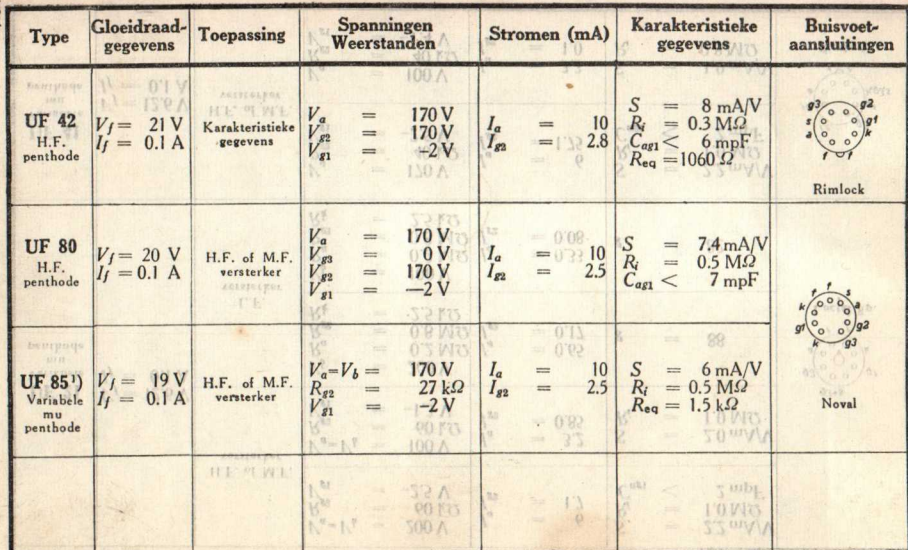 Type
Gloeidraad-
gegevens
Toepassing
Spanningen
Weerstanden
Stromen (mA)
Karakteristieke
gegevens
Buisvoet-
aansluitingen
UF 42
H.F.
penthode
Vf = 21 V
If = 0.1 A
Karakteristieke
gegevens
Va = 170 V
Vg2 = 170 V
Vg1 = -2 V
Ia = 10
Ig2 = 2.8
S = 8 mA/V
Ri = 0.3 MΩ
Cag1 < 6 mpF
Req = 1060 Ω
g3 g2
s g1
a k
f f
Rimlock
UF 80
H.F.
penthode
Vf = 20 V
If = 0.1 A
H.F. of M.F.
versterker
Va = 170 V
Vg3 = 0 V
Vg2 = 170 V
Vg1 = —2 V
Ia = 10
Ig2 = 2.5
S = 7.4 mA/V
Ri = 0.5 MΩ
Cag1 < 7 mpF
UF 85¹)
Variabele
mu
penthode
Vf = 19 V
If = 0.1 A
H.F. of M.F.
versterker
Va=Vb = 170 V
Rg2 = 27 kΩ
Vg1 = -2 V
Ia = 10
Ig2 = 2.5
S = 6 mA/V
Ri = 0.5 MΩ
Req = 1.5 kΩ
f f s
k a
g1 g2
k g3
Noval